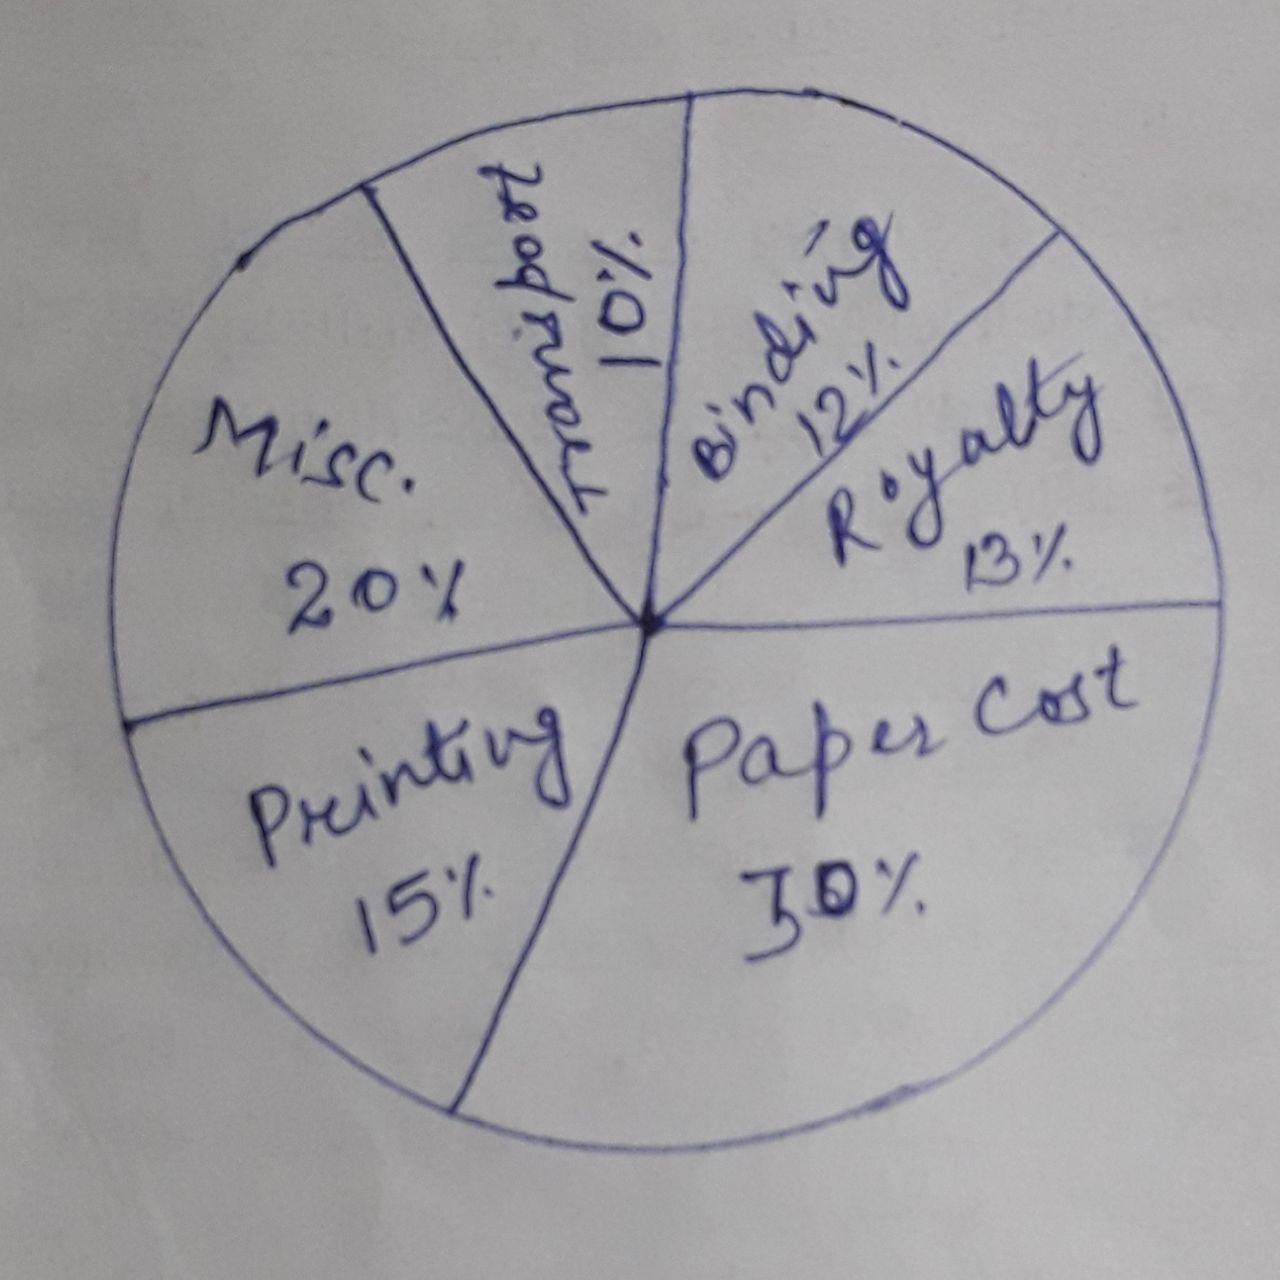 Transport
10%
Binding
12%
Royalty
13%
Misc.
20%
Printing
15%
Paper Cost
30%